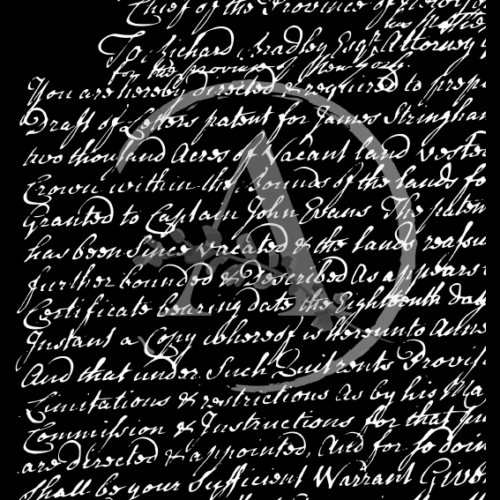 Chief of the Province of New York
To Richard Bradley Esqr. Attorney
for the province of New York.
You are hereby directed & required to prep
Draft of Letters patent for James Stringham
two thousand Acres of Vacant land veste
Crown within the bounds of the lands fo
Granted to Captain John Evans The paten
has been since vacated & the lands reassu
further bounded & Described as appears
Certificate bearing date the Eighteenth day
Instant a Copy whereof is hereunto Anne
And that under Such Quit rents Provis
Limitations & restrictions as by his Ma
Commission & Instructions for that
are directed & appointed, And for so doin
Shall be your Sufficient Warrant Given